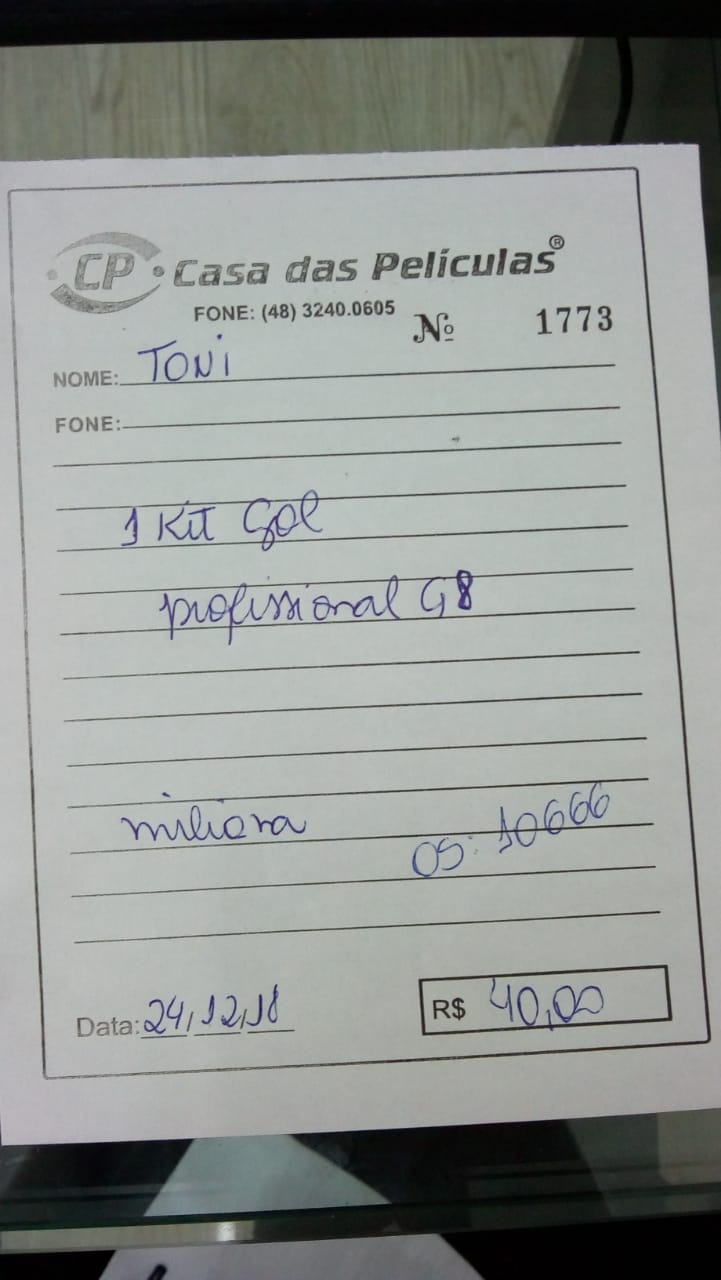 CP Casa das Películas®
FONE: (48) 3240.0605 Nº 1773
NOME: TONI
FONE:
1 Kit Gol
profissional G8
miliora
OS: 10666
Data: 24/12/18 R$ 40,00